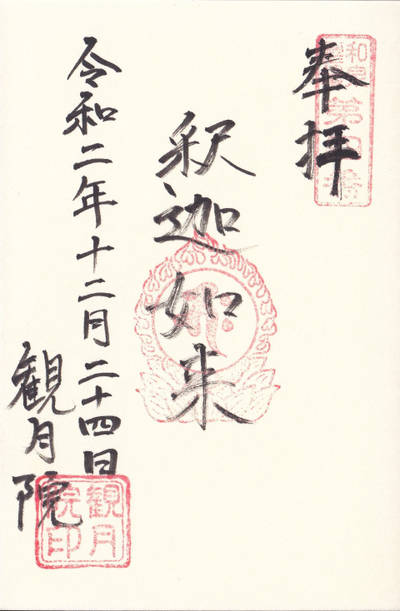 奉拝
釈迦如来
令和二年十二月二十四日
観月院
観月院印